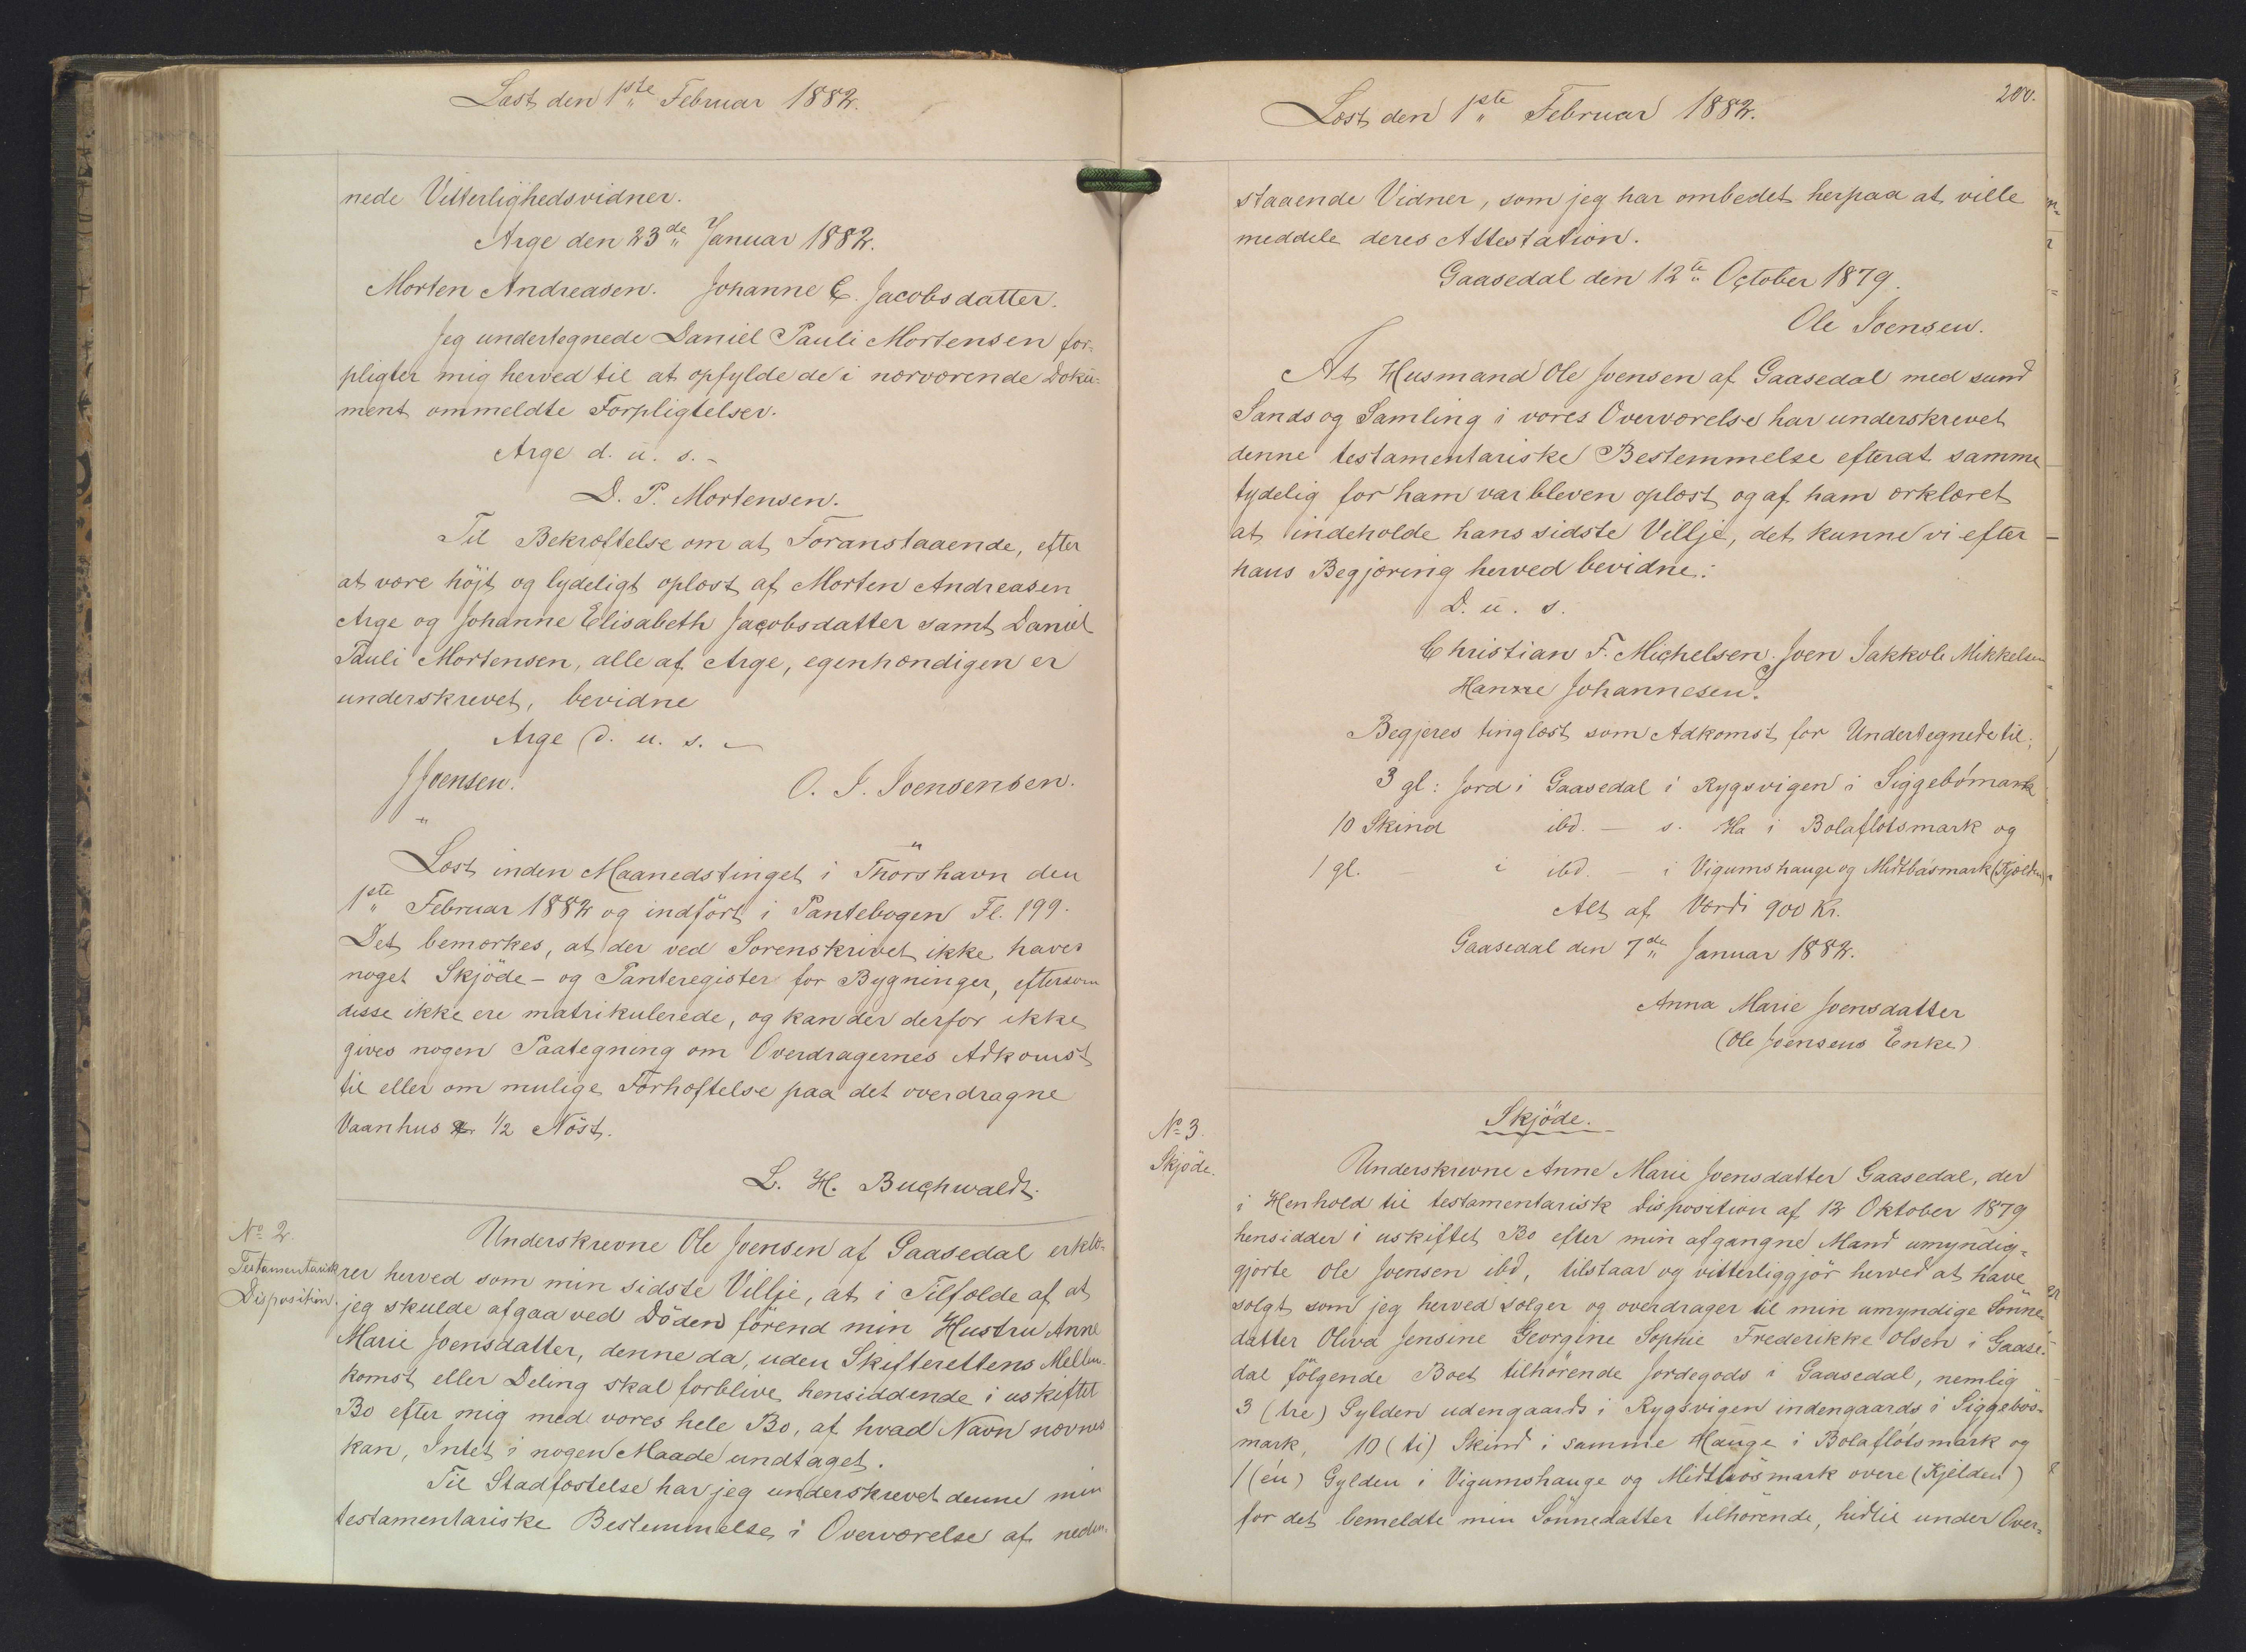 Læst den 1ste Februar 1882.
nede Vitterlighedsvidner.
Arge den 23de Januar 1882.
Morten Andreasen. Johanne E. Jacobsdatter.
Jeg undertegnede Daniel Pauli Mortensen for-
pligter mig herved til at opfylde de i nærværende Doku-
ment ommeldte Forpligtelser.
Arge d. u. s. -
D. P. Mortensen.
Til Bekræftelse om at Foranstaaende, efter
at være höjt og lydeligt oplæst af Morten Andreasen
Arge og Johanne Elisabeth Jacobsdatter samt Daniel
Pauli Mortensen, alle af Arge, egenhændigen er
underskrevet, bevidne
Arge d. u. s. -
J Joensen. O. J. Joensensen.
Læst inden Maanedstinget i Thörshavn den
1ste Februar 1882 og indfört i Pantebogen Fl. 199.
Det bemærkes, at der ved Sorenskrivet ikke haves
noget Skjöde- og Panteregister for Bygninger, eftersom
disse ikke ere matrikulerede, og kan der derfor ikke
gives nogen Paategning om Overdragernes Adkomst
til eller om mulige Forhæftelse paa det overdragne
Vaanhus & 1/2 Nöst.
L. H. Buchwaldt.
No 2.
Testamentarisk
Disposition.
Underskrevne Ole Joensen af Gaasedal erklæ-
rer herved som min sidste Villje, at i Tilfælde af at
jeg skulde afgaa ved Döden förend min Hustru Anne
Marie Joensdatter, denne da, uden Skifterettens Mellem-
komst eller Deling skal forblive hensiddende i uskiftet
Bo efter mig med vores hele Bo, af hvad Navn nævnes
kan, Intet i nogen Maade undtaget.
Til Stadfæstelse har jeg underskrevet denne min
testamentariske Bestemmelse i Overværelse af neden-
Læst den 1ste Februar 1882.
200.
staaende Vidner, som jeg har ombedet herpaa at ville
meddele deres Attestation.
Gaasedal den 12te October 1879.
Ole Joensen.
At Husmand Ole Joensen af Gaasedal med sund
Sands og Samling i vores Overværelse har underskrevet
denne testamentariske Bestemmelse efterat samme
tydelig for ham var bleven oplæst og af ham erklæret
at indeholde hans sidste Villje, det kunne vi efter
hans Begjæring herved bevidne:
D. u. s.
Christian F. Michelsen. Joen Jakkob Mikkelsen
Hanne Johannesen.
Begjeres tinglæst som Adkomst for Undertegnede til:
3 gl: Jord i Gaasedal i Rygsvigen i Siggebömark
10 Skind ibd. - s. Ha i Bolaflötsmark og
1 gl. - i ibd. - i Vigumshauge og Midtbösmark (Kjelden)
Alt af Værdi 900 Kr.
Gaasedal den 7de Januar 1882.
Anna Marie Joensdatter
(Ole Joensens Enke)
No 3.
Skjöde.
Skjöde.
Underskrevne Anne Marie Joensdatter Gaasedal, der
i Henhold til testamentarisk Disposition af 12 Oktober 1879
hensidder i uskiftet Bo efter min afgangne Mand umyndig-
gjorte Ole Joensen ibd, tilstaar og vitterliggjör herved at have
solgt som jeg herved sælger og overdrager til min umyndige Sönne-
datter Oliva Jensine Georgine Sophie Frederikke Olsen i Gaase-
dal fölgende Boet tilhörende Jordegods i Gaasedal, nemlig
3 (tre) Gylden udengaards i Rygsvigen indengaards i Siggebös-
mark, 10 (ti) Skind i samme Hauge i Bolaflötsmark og
1 (én) Gylden i Vigumshauge og Midtbösmark övere (Kjelden)
for det bemeldte min Sönnedatter tilhörende, hidtil under Over-